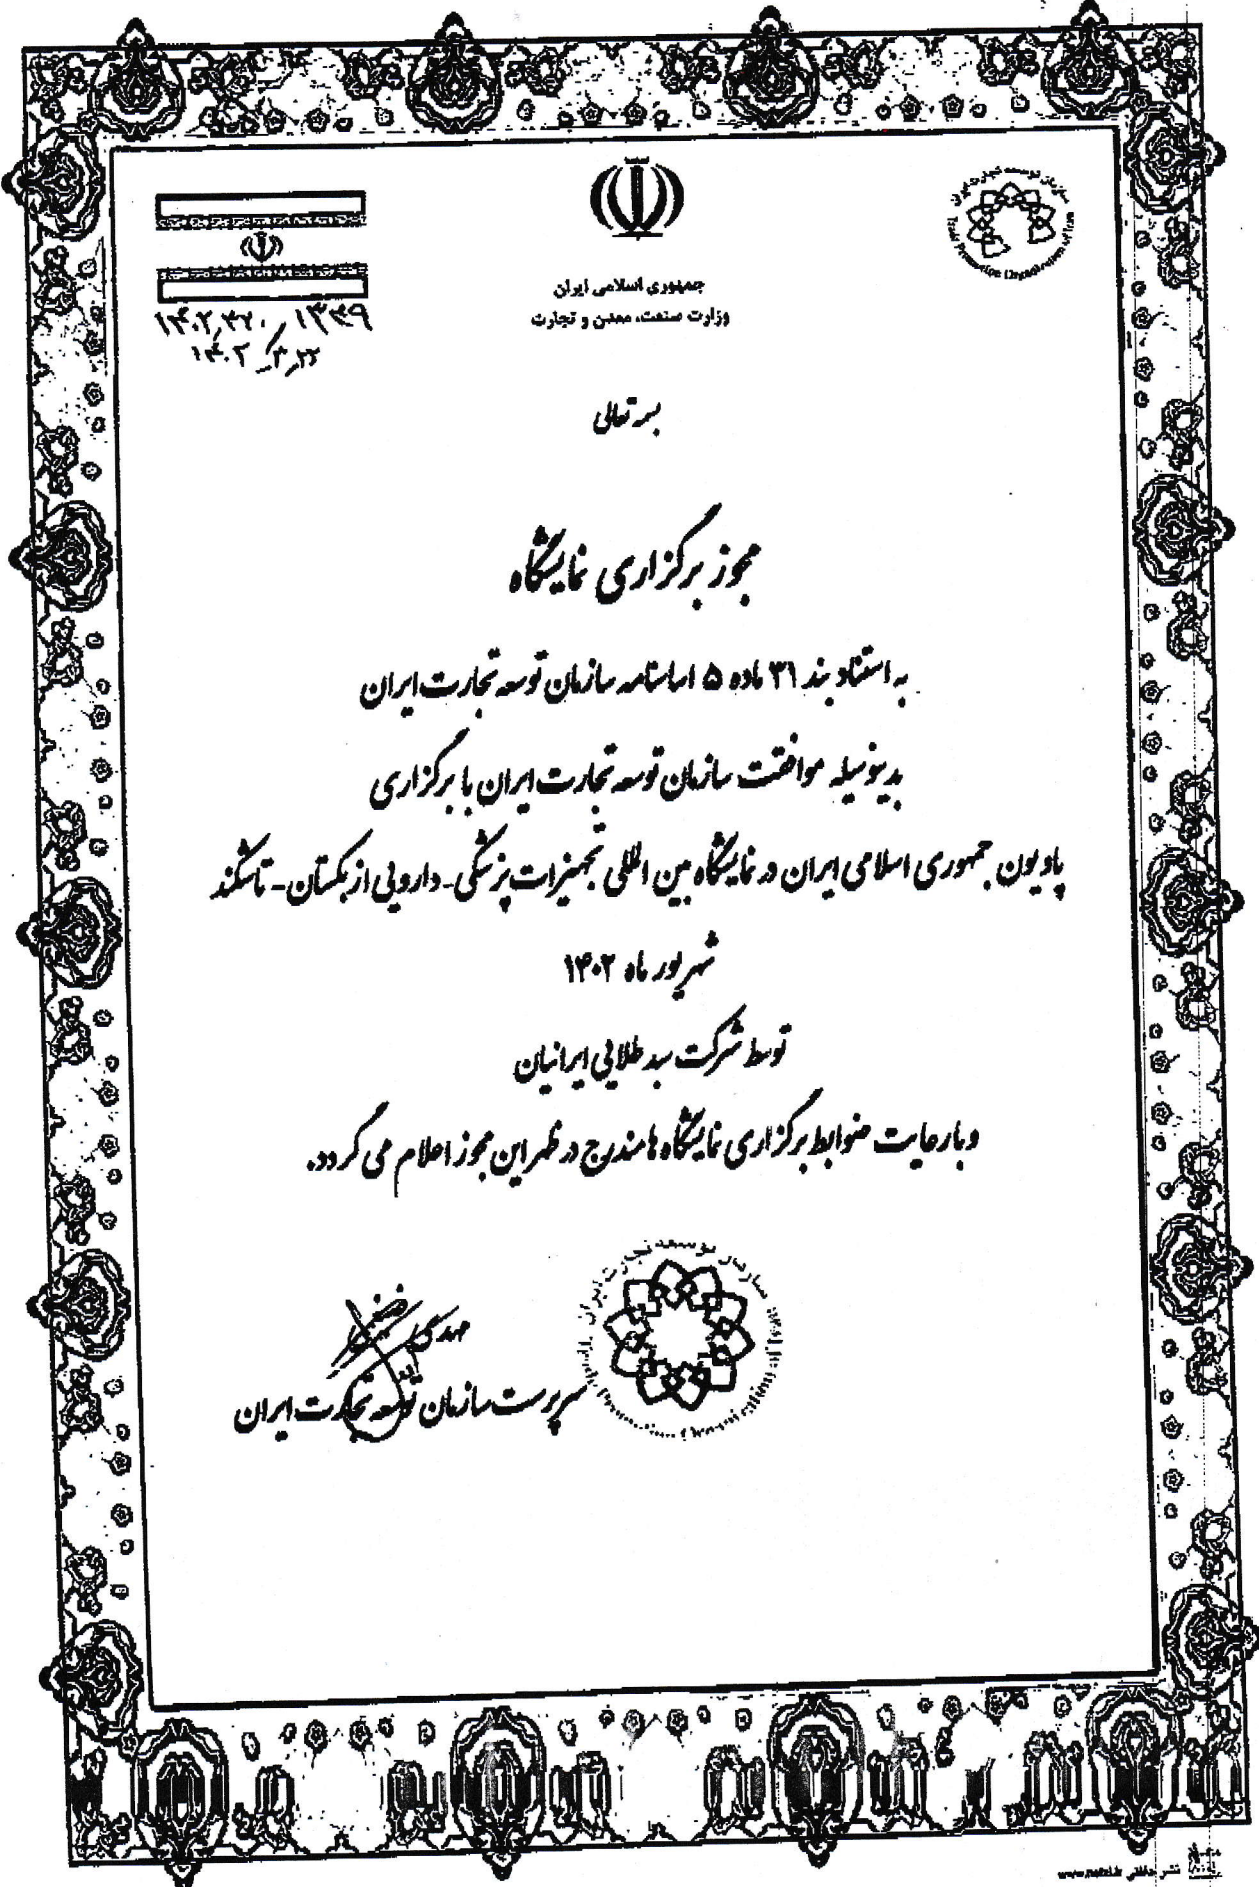 سازمان توسعه تجارت ایران
Trade Promotion Organization of Iran
جمهوری اسلامی ایران
وزارت صنعت، معدن و تجارت
۱۴۰۲٫۳۲۰٫۱۳۳۹
۱۴۰۲٫۳٫۲۲
بسمه تعالی
مجوز برگزاری نمایشگاه
به استناد بند ۳۱ ماده ۵ اساسنامه سازمان توسعه تجارت ایران
بدینوسیله موافقت سازمان توسعه تجارت ایران با برگزاری
پاویون جمهوری اسلامی ایران در نمایشگاه بین المللی تجهیزات پزشکی - دارویی ازبکستان - تاشکند
شهریور ماه ۱۴۰۲
توسط شرکت سبد طلایی ایرانیان
و با رعایت ضوابط برگزاری نمایشگاه ها مندرج در ظهر این مجوز اعلام می گردد.
سازمان توسعه تجارت ایران
Trade Promotion Organization of Iran
مهدی ضیغمی
سرپرست سازمان توسعه تجارت ایران
نشر